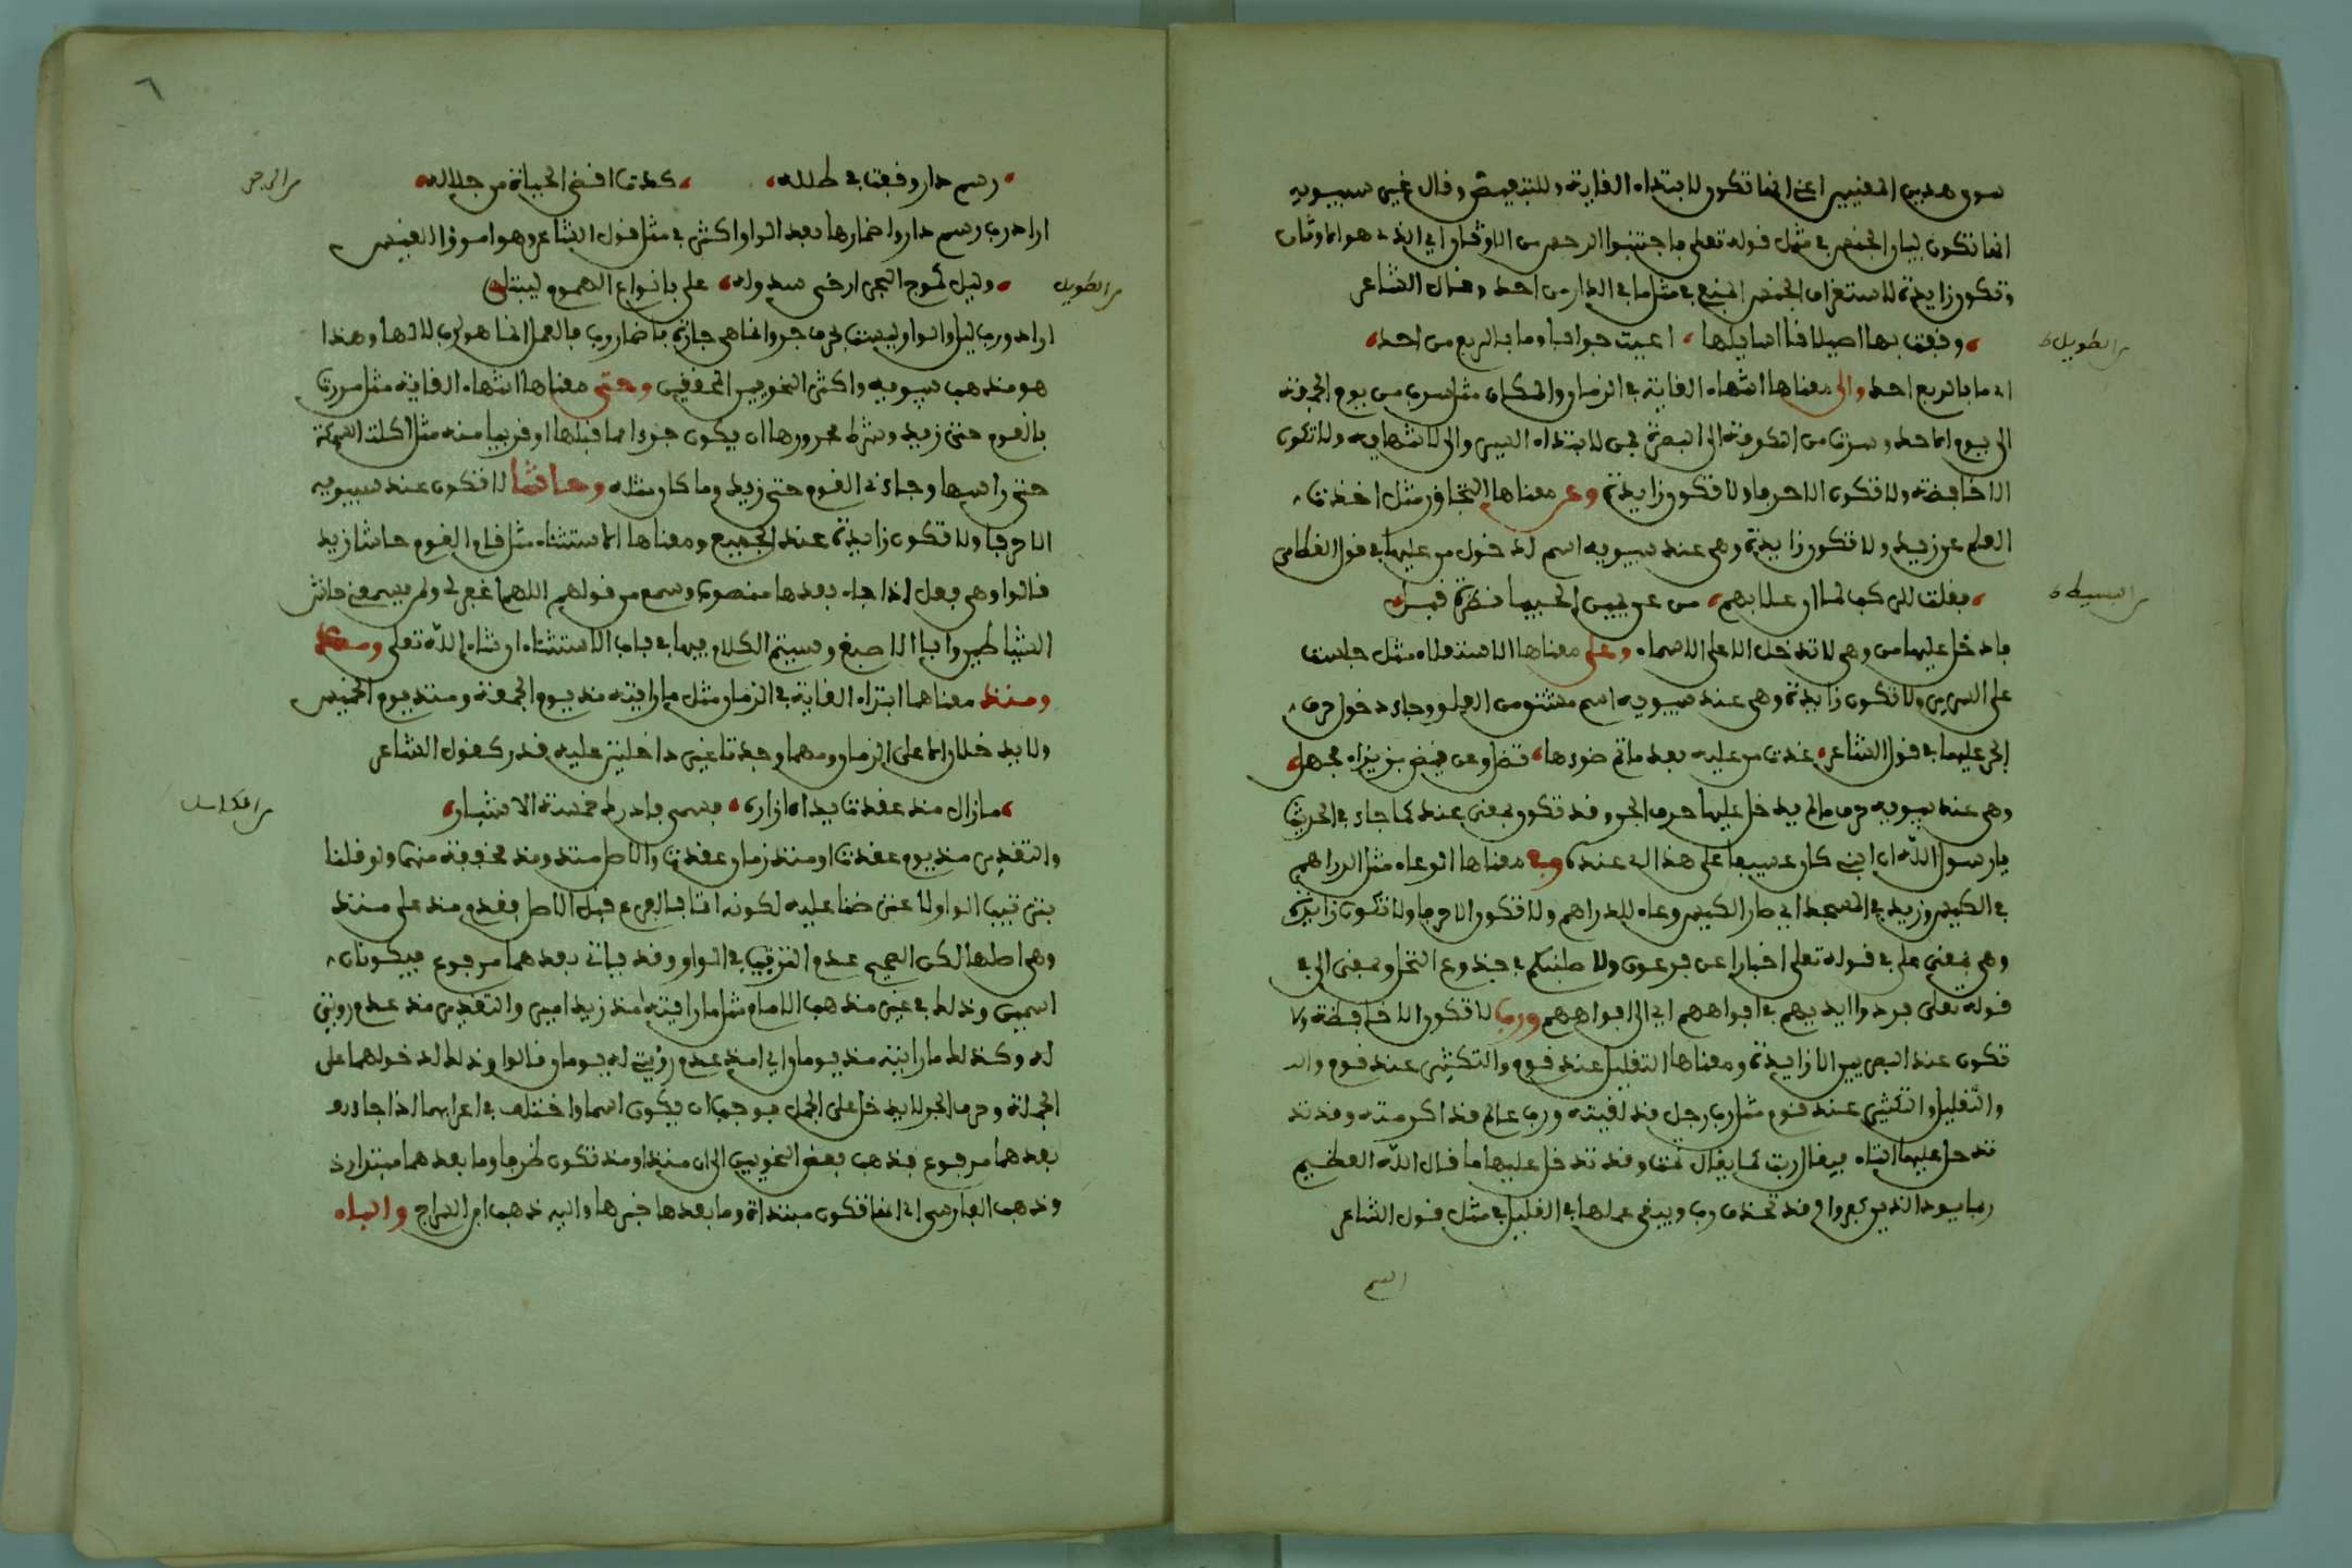 سوى هذين المعنيين اعني انها تكون لابتداء الغاية وللتبعيض وقال غير سيبويه
انها تكون لبيان الجنس في مثل قوله تعلى فاجتنبوا الرجس من الاوثان اي الذي هو الاوثان
وتكون زايدة لاستغراق الجنس في مثل ما في الدار من احد وقال الشاعر
من الطويل
وقفت بها اصيلا فا اسايلها اعيت جوابا وما بالربع من احد
اي ما بالربع احد والى معناها انتهاء الغاية في الزمان والمكان مثل سرت من يوم الجمعة
الى يوم الاحد وسرت من الكوفة الى البصرة فمن لابتداء السير والى لانتهايه ولا تكون
الا خافضة ولا تكون الا حرفا ولا تكون زايدة وعن معناها التجاوز مثل اخذت
العلم عن زيد ولا تكون زايدة وهي عند سيبويه اسم لدخول من عليها في قول القطامي
من البسيط
فقلت للركب لما ان علا بهم من عن يمين الحبيا نظرة قبل
فادخل عليها من وهي لا تدخل الا على الاسماء وعلى معناها الاستعلاء مثل جلست
على السرير ولا تكون زايدة وهي عند سيبويه اسم مشتق من العلو وجاء دخول حرف
الجر عليها في قول الشاعر غدت من عليه بعد ما تم ضوءها تصل وعن قيض بزيزاء مجهل
وهي عند سيبويه حرف ما لم يدخل عليها حرف الجر وقد تكون بمعنى عند كما جاء في الحديث
يا رسول الله ان ابني كان عسيفا على هذا اي عنده وفي معناها الوعاء مثل الدراهم
في الكيس وزيد في المسجد اي صار الكيس وعاء للدراهم ولا تكون الا حرفا ولا تكون زايدة
وهي بمعنى على في قوله تعلى اخبارا عن فرعون ولاصلبنكم في جذوع النخل وبمعنى الى في
قوله تعلى فردوا ايديهم في افواههم اي الى افواههم ورب لا تكون الا خافضة ولا
تكون عند البصريين الا زايدة ومعناها التقليل عند قوم والتكثير عند قوم وال
والتقليل والتكثير عند قوم مثل رب رجل قد لقيته ورب عالم قد اكرمته وقد تد
تدخل عليها التاء فيقال ربت كما يقال ثمت وقد تدخل عليها ما قال الله العظيم
ربما يود الذين كفروا وقد تحذف رب ويبقى عملها في القليل في مثل قول الشاعر
رسم دار وقفت في طلله كدت اقضي الحياة من جلله
من الرجز
اراد رب رسم دار واضمارها بعد الواو اكثر في مثل قول الشاعر وهو امرؤ القيس
من الطويل
وليل كموج البحر ارخى سدوله علي بانواع الهموم ليبتلي
اراد ورب ليل والواو ليست بحرف جر وانما هي جازة باضمار رب فالعمل انما هو لرب لا لها وهذا
هو مذهب سيبويه واكثر النحويين المحققين وحتى معناها انتهاء الغاية مثل مررت
بالقوم حتى زيد وشرط مجرورها ان يكون جزءا مما قبلها او قريبا منه مثل اكلت السمكة
حتى راسها وجاءني القوم حتى زيد وما كان مثله وحاشا لا تكون عند سيبويه
الا حرفا ولا تكون زايدة عند الجميع ومعناها الاستثناء مثل قام القوم حاشا زيد
قالوا وهي فعل اذا جاء بعدها منصوب وسمع من قولهم اللهم اغفر لي ولمن يسمعني حاشى
الشيطان وابا الاصبغ وسيتم الكلام فيها في باب الاستثناء ان شاء الله تعلى
ومنذ معناهما ابتداء الغاية في الزمان مثل ما رايته مذ يوم الجمعة ومنذ يوم الخميس
ولا يدخلان الا على الزمان ومهما وجدتا غير داخلتين عليه قدر كقول الشاعر
من الكامل
ما زال مذ عقدت يداه ازاره فسمى فادرك خمسة الاشبار
والتقدير مذ يوم عقدت او منذ زمان عقدت والاصل منذ ومذ مخففة منها ولو قلنا
بترتيب الواو لاعترضنا عليه لكونه اتى بالفرع قبل الاصل فقدم مذ على منذ
وهي اصلها لكن الصحيح عدم الترتيب في الواو وقد ياتي بعدهما مرفوع فيكونان
اسمين وذلك في غير مذهب الامام مثل ما رايته مذ زيد امير والتقدير مذ عدم رويتي
له وكذلك ما رايته مذ يومان اي امد عدم رؤيتي له يومان قالوا وذلك لدخولهما على
الجملة وحرف الجر لا يدخل على الجمل فوجب ان يكون اسما واختلف في اعرابهما اذا جاء
بعدهما مرفوع فذهب بعض النحويين الى ان منذ او مذ تكون ظرفا وما بعدهما مبتدا
وذهب الفارسي الى انها تكون مبتداة وما بعدها خبرها واليه ذهب ابن السراج والباء